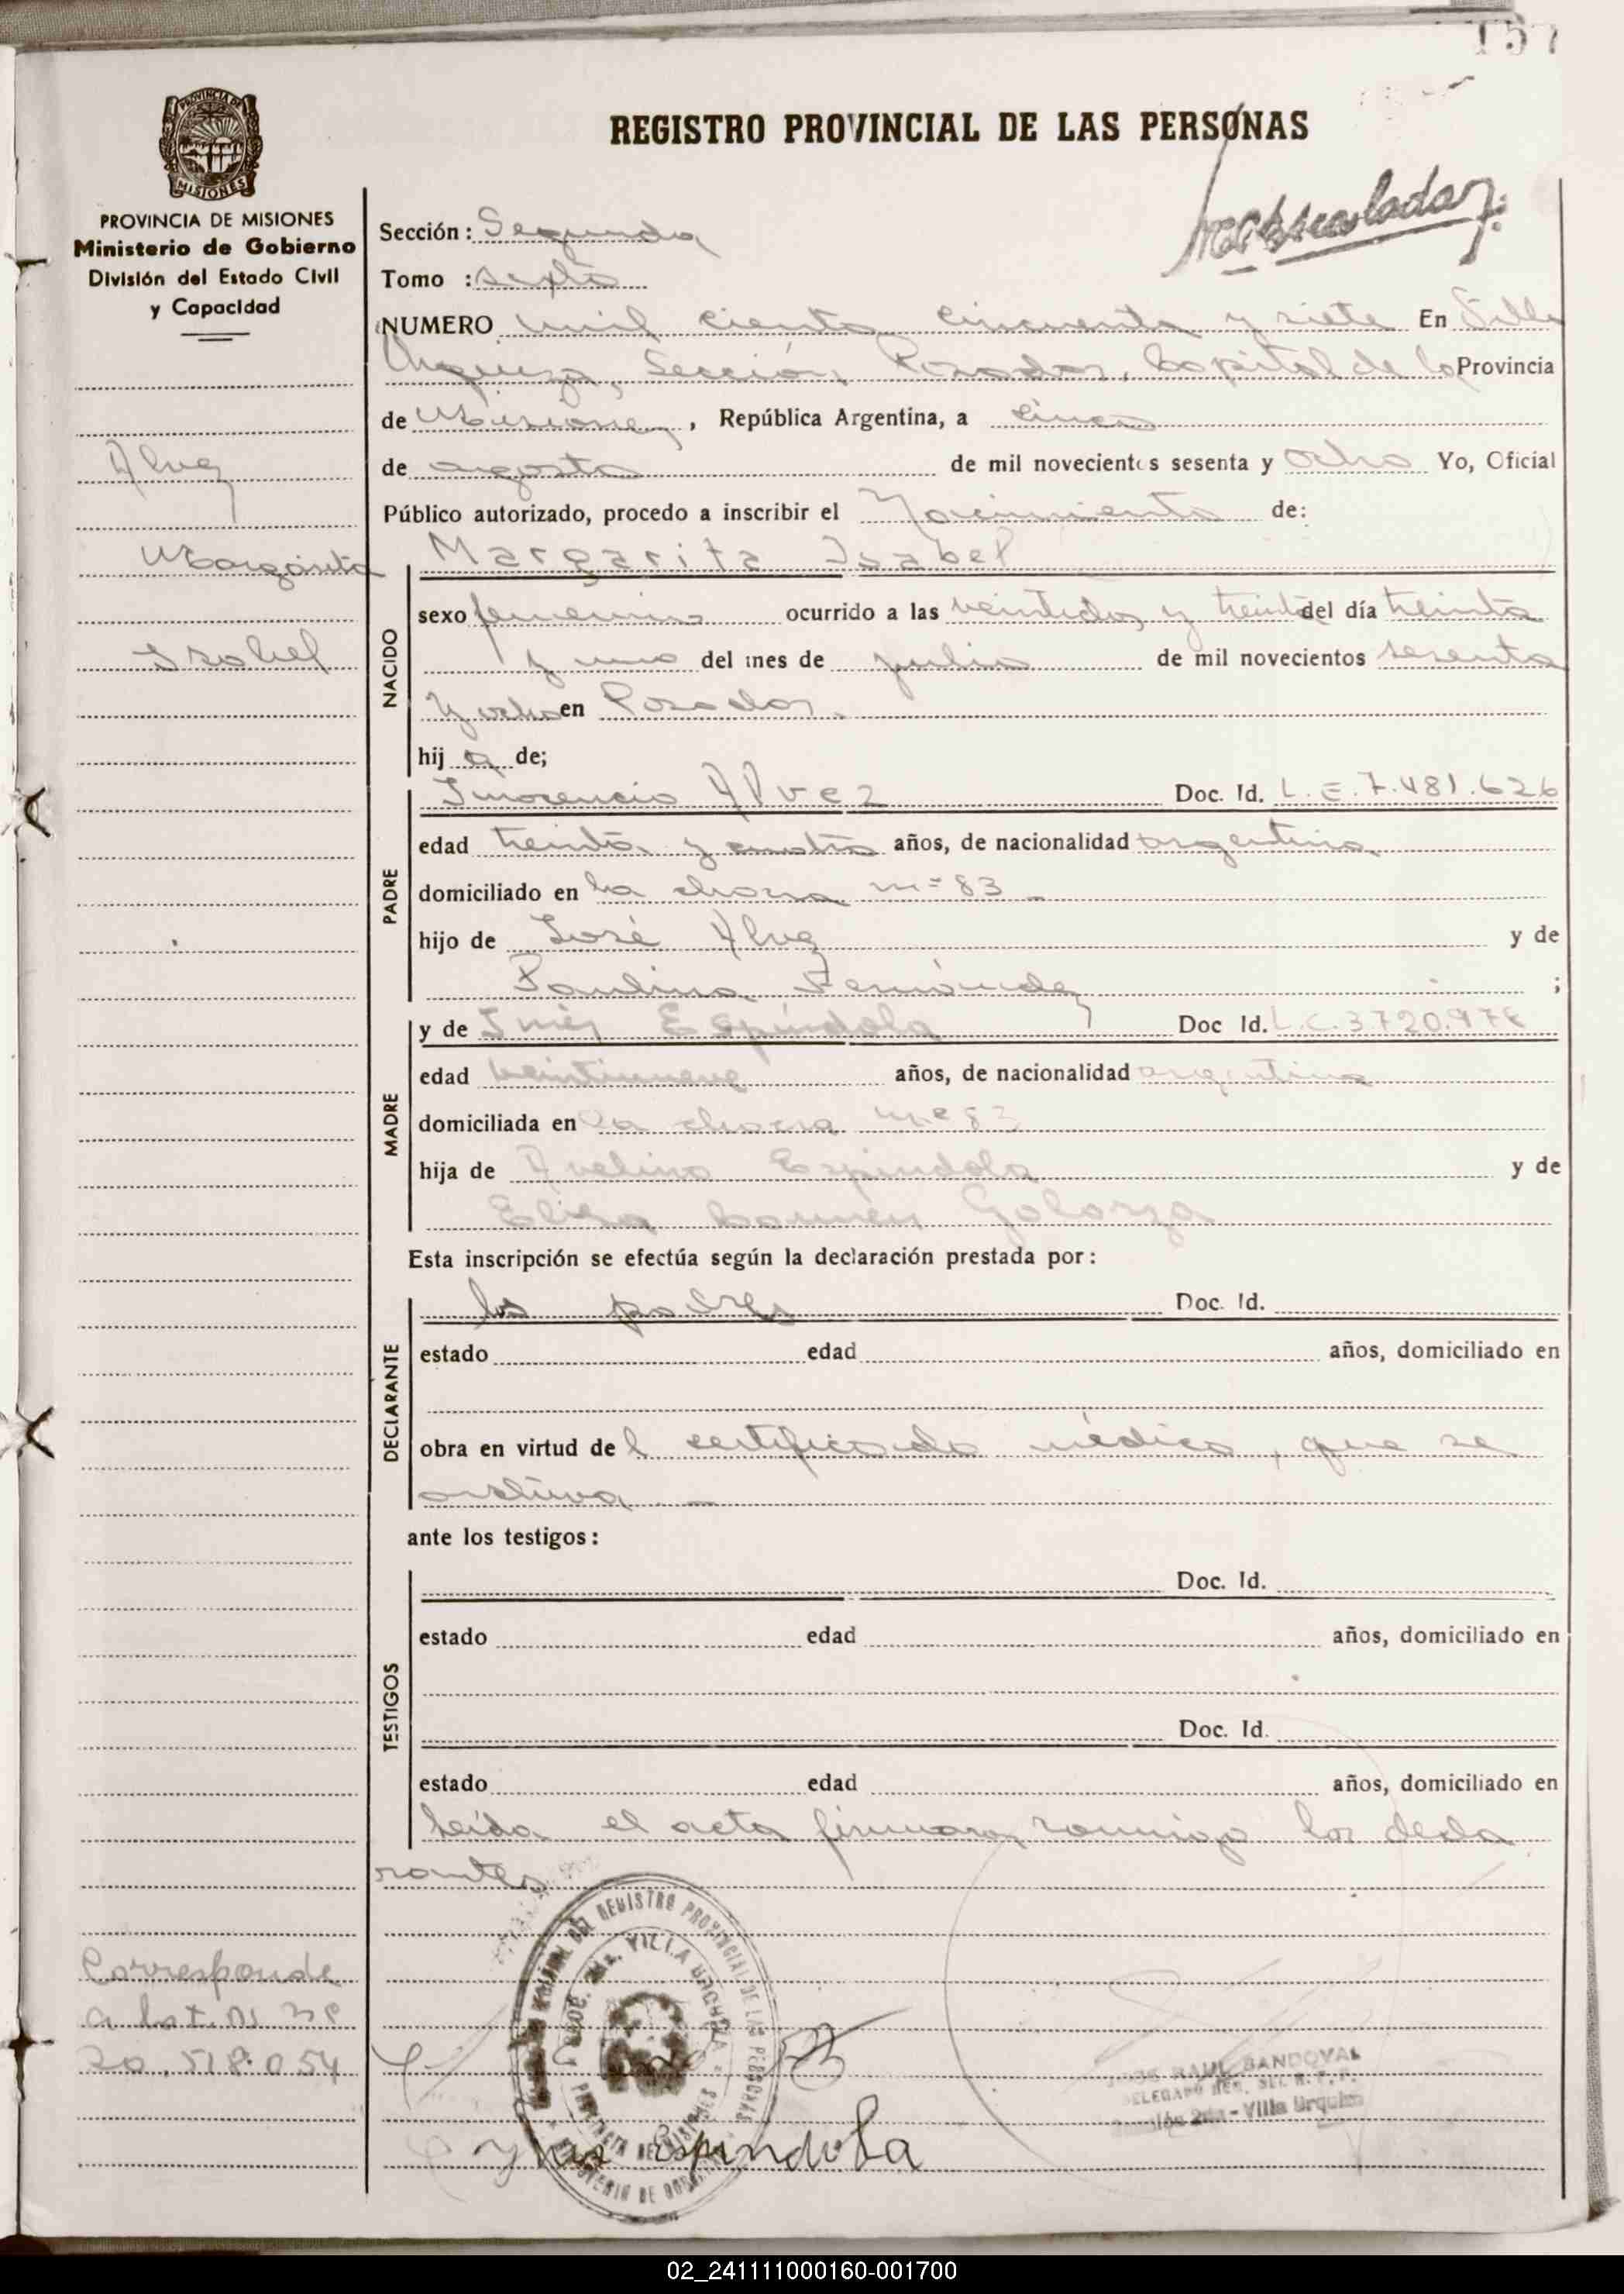 157
PROVINCIA DE
MISIONES
REGISTRO PROVINCIAL DE LAS PERSONAS
PROVINCIA DE MISIONES
Ministerio de Gobierno
División del Estado Civil
y Capacidad
Sección: Segunda
Tomo : sexto
NUMERO mil ciento cincuenta y siete En Villa
Urquiza, Sección, Posadas, Capital de la Provincia
de Misiones, República Argentina, a cinco
de agosto de mil novecientos sesenta y ocho Yo, Oficial
Público autorizado, procedo a inscribir el Nacimiento de:
Alvez
Margarita
Isabel
Margarita Isabel
NACIDO
sexo femenino ocurrido a las veintidos y treinta del día treinta
y uno del mes de julio de mil novecientos sesenta
y ocho en Posadas.
hija de;
PADRE
Inocencio Alvez Doc. Id. L.E.7.481.626
edad treinta y cuatro años, de nacionalidad argentina
domiciliado en la chacra nº 83 _
hijo de José Alvez y de
Paulina Fernández ;
MADRE
y de Inés Espíndola Doc Id. L.C.3720.978
edad veintinueve años, de nacionalidad argentina
domiciliada en la chacra nº 83
hija de Avelino Espíndola y de
Elisa Carmen Galarza
Esta inscripción se efectúa según la declaración prestada por:
DECLARANTE
los padres Doc. Id.
estado edad años, domiciliado en
obra en virtud del certificado médico, que se
archiva _
ante los testigos:
TESTIGOS
Doc. Id.
estado edad años, domiciliado en
Doc. Id.
estado edad años, domiciliado en
Leída el acta firman conmigo los decla
rantes
Corresponde
a la L.M. Nº
20.518.054
DEL REGISTRO PROVINCIAL DE LAS PERSONAS
SECC. 2da. VILLA URQUIZA
PROVINCIA DE MISIONES
MINISTERIO DE GOBIERNO
JOSE RAUL SANDOVAL
DELEGADO
Sección 2da - Villa Urquiza
Ynes Espindola
02_241111000160-001700